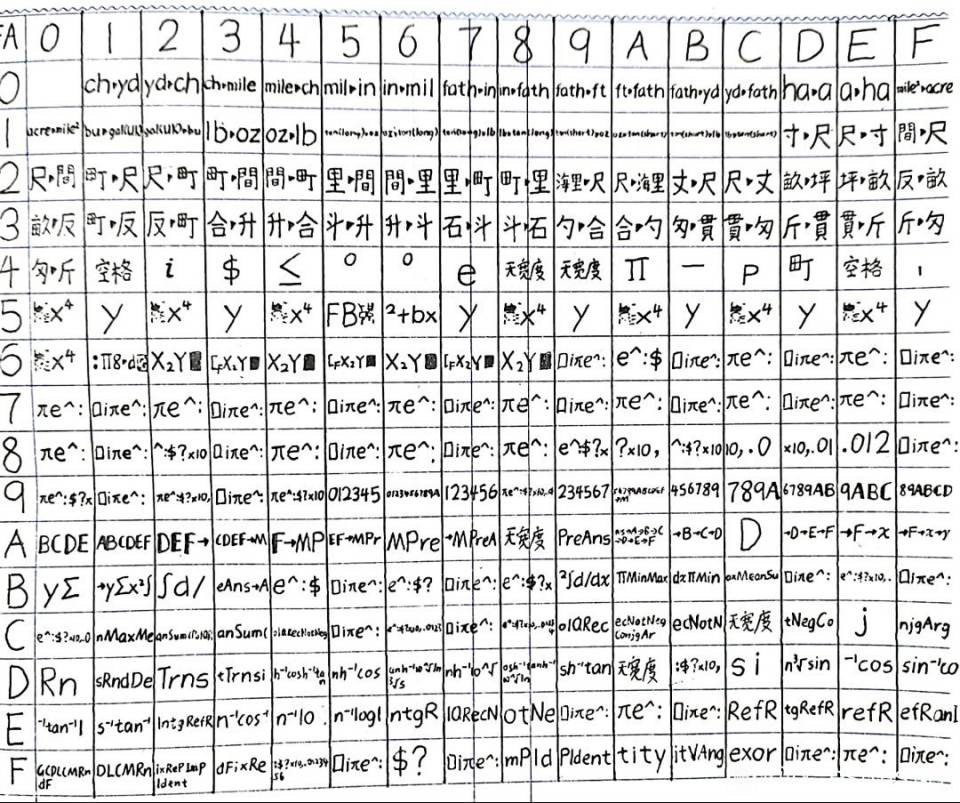 FA 0 1 2 3 4 5 6 7 8 9 A B C D E F
0 ch▸yd yd▸ch ch▸mile mile▸ch mil▸in in▸mil fath▸in in▸fath fath▸ft ft▸fath fath▸yd yd▸fath ha▸a a▸ha mile²▸acre
1 acre▸mile² bu▸gal(UK) gal(UK)▸bu lb▸oz oz▸lb ton(long)▸oz oz▸ton(long) ton(long)▸lb lb▸ton(long) ton(short)▸oz oz▸ton(short) ton(short)▸lb lb▸ton(short) 寸▸尺 尺▸寸 間▸尺
2 尺▸間 町▸尺 尺▸町 町▸間 間▸町 里▸間 間▸里 里▸町 町▸里 海里▸尺 尺▸海里 丈▸尺 尺▸丈 畝▸坪 坪▸畝 反▸畝
3 畝▸反 町▸反 反▸町 合▸升 升▸合 斗▸升 升▸斗 石▸斗 斗▸石 勺▸合 合▸勺 匁▸貫 貫▸匁 斤▸貫 貫▸斤 斤▸匁
4 匁▸斤 空格 i $ ≤ ° ° e 无宽度 无宽度 Π − p 町 空格 ı
5 x⁴ y x⁴ y x⁴ FB ²+bx y x⁴ y x⁴ y x⁴ y x⁴ y
6 x⁴ :Π8▸d X₂Y [FX₂Y X₂Y [FX₂Y X₂Y [FX₂Y X₂Y □iπe^: e^:$ □iπe^: πe^: □iπe^: πe^: □iπe^:
7 πe^: □iπe^: πe^: □iπe^: πe^: □iπe^: πe^: □iπe^: πe^: □iπe^: πe^: □iπe^: πe^: □iπe^: πe^: □iπe^:
8 πe^: □iπe^: ^:$?x10 □iπe^: πe^: □iπe^: πe^: □iπe^: πe^: e^:$?x ?x10, ^:$?x10 10,.0 x10,.01 .012 □iπe^:
9 πe^:$?x □iπe^: πe^:$?x10, □iπe^: πe^:$?x10 012345 0123456789A 123456 πe^:$?x10,.0 234567 456789 789A 6789AB 9ABC 89ABCD
A BCDE ABCDEF DEF→ CDEF→M F→MP EF→MPr MPre →MPreA 无宽度 PreAns →A→B→C→D→E→F →B→C→D D →D→E→F →F→x →F→x→y
B yΣ →yΣx²∫ ∫d/ eAns→A e^:$ □iπe^: e^:$? □iπe^: e^:$?x ²∫d/dx ΠMinMax dxΠMin axMeanSu □iπe^: e^:$?x10,. □iπe^:
C e^:$?x10,.0 nMaxMe anSum( □iπe^: □iπe^: olQRec ecNotNeg ConjgAr ecNotN 无宽度 tNegCo j njgArg
D Rn sRndDe Trns tTrnsi h⁻¹cosh⁻¹tan nh⁻¹cos nh⁻¹10^√ sh⁻¹tan 无宽度 :$?x10, si n³√sin ⁻¹cos sin⁻¹co
E ⁻¹tan⁻¹l s⁻¹tan⁻¹ IntgRefR n⁻¹cos⁻¹ n⁻¹lo n⁻¹logl ntgR lQRecN otNe □iπe^: πe^: □iπe^: RefR tgRefR refR efRanI
F GCDLCMRndF DLCMRn ixRePImPIdent dFixRe :$?x10,.0123456 □iπe^: $? □iπe^: mPId PIdent tity itVAng exor □iπe^: πe^: □iπe^: